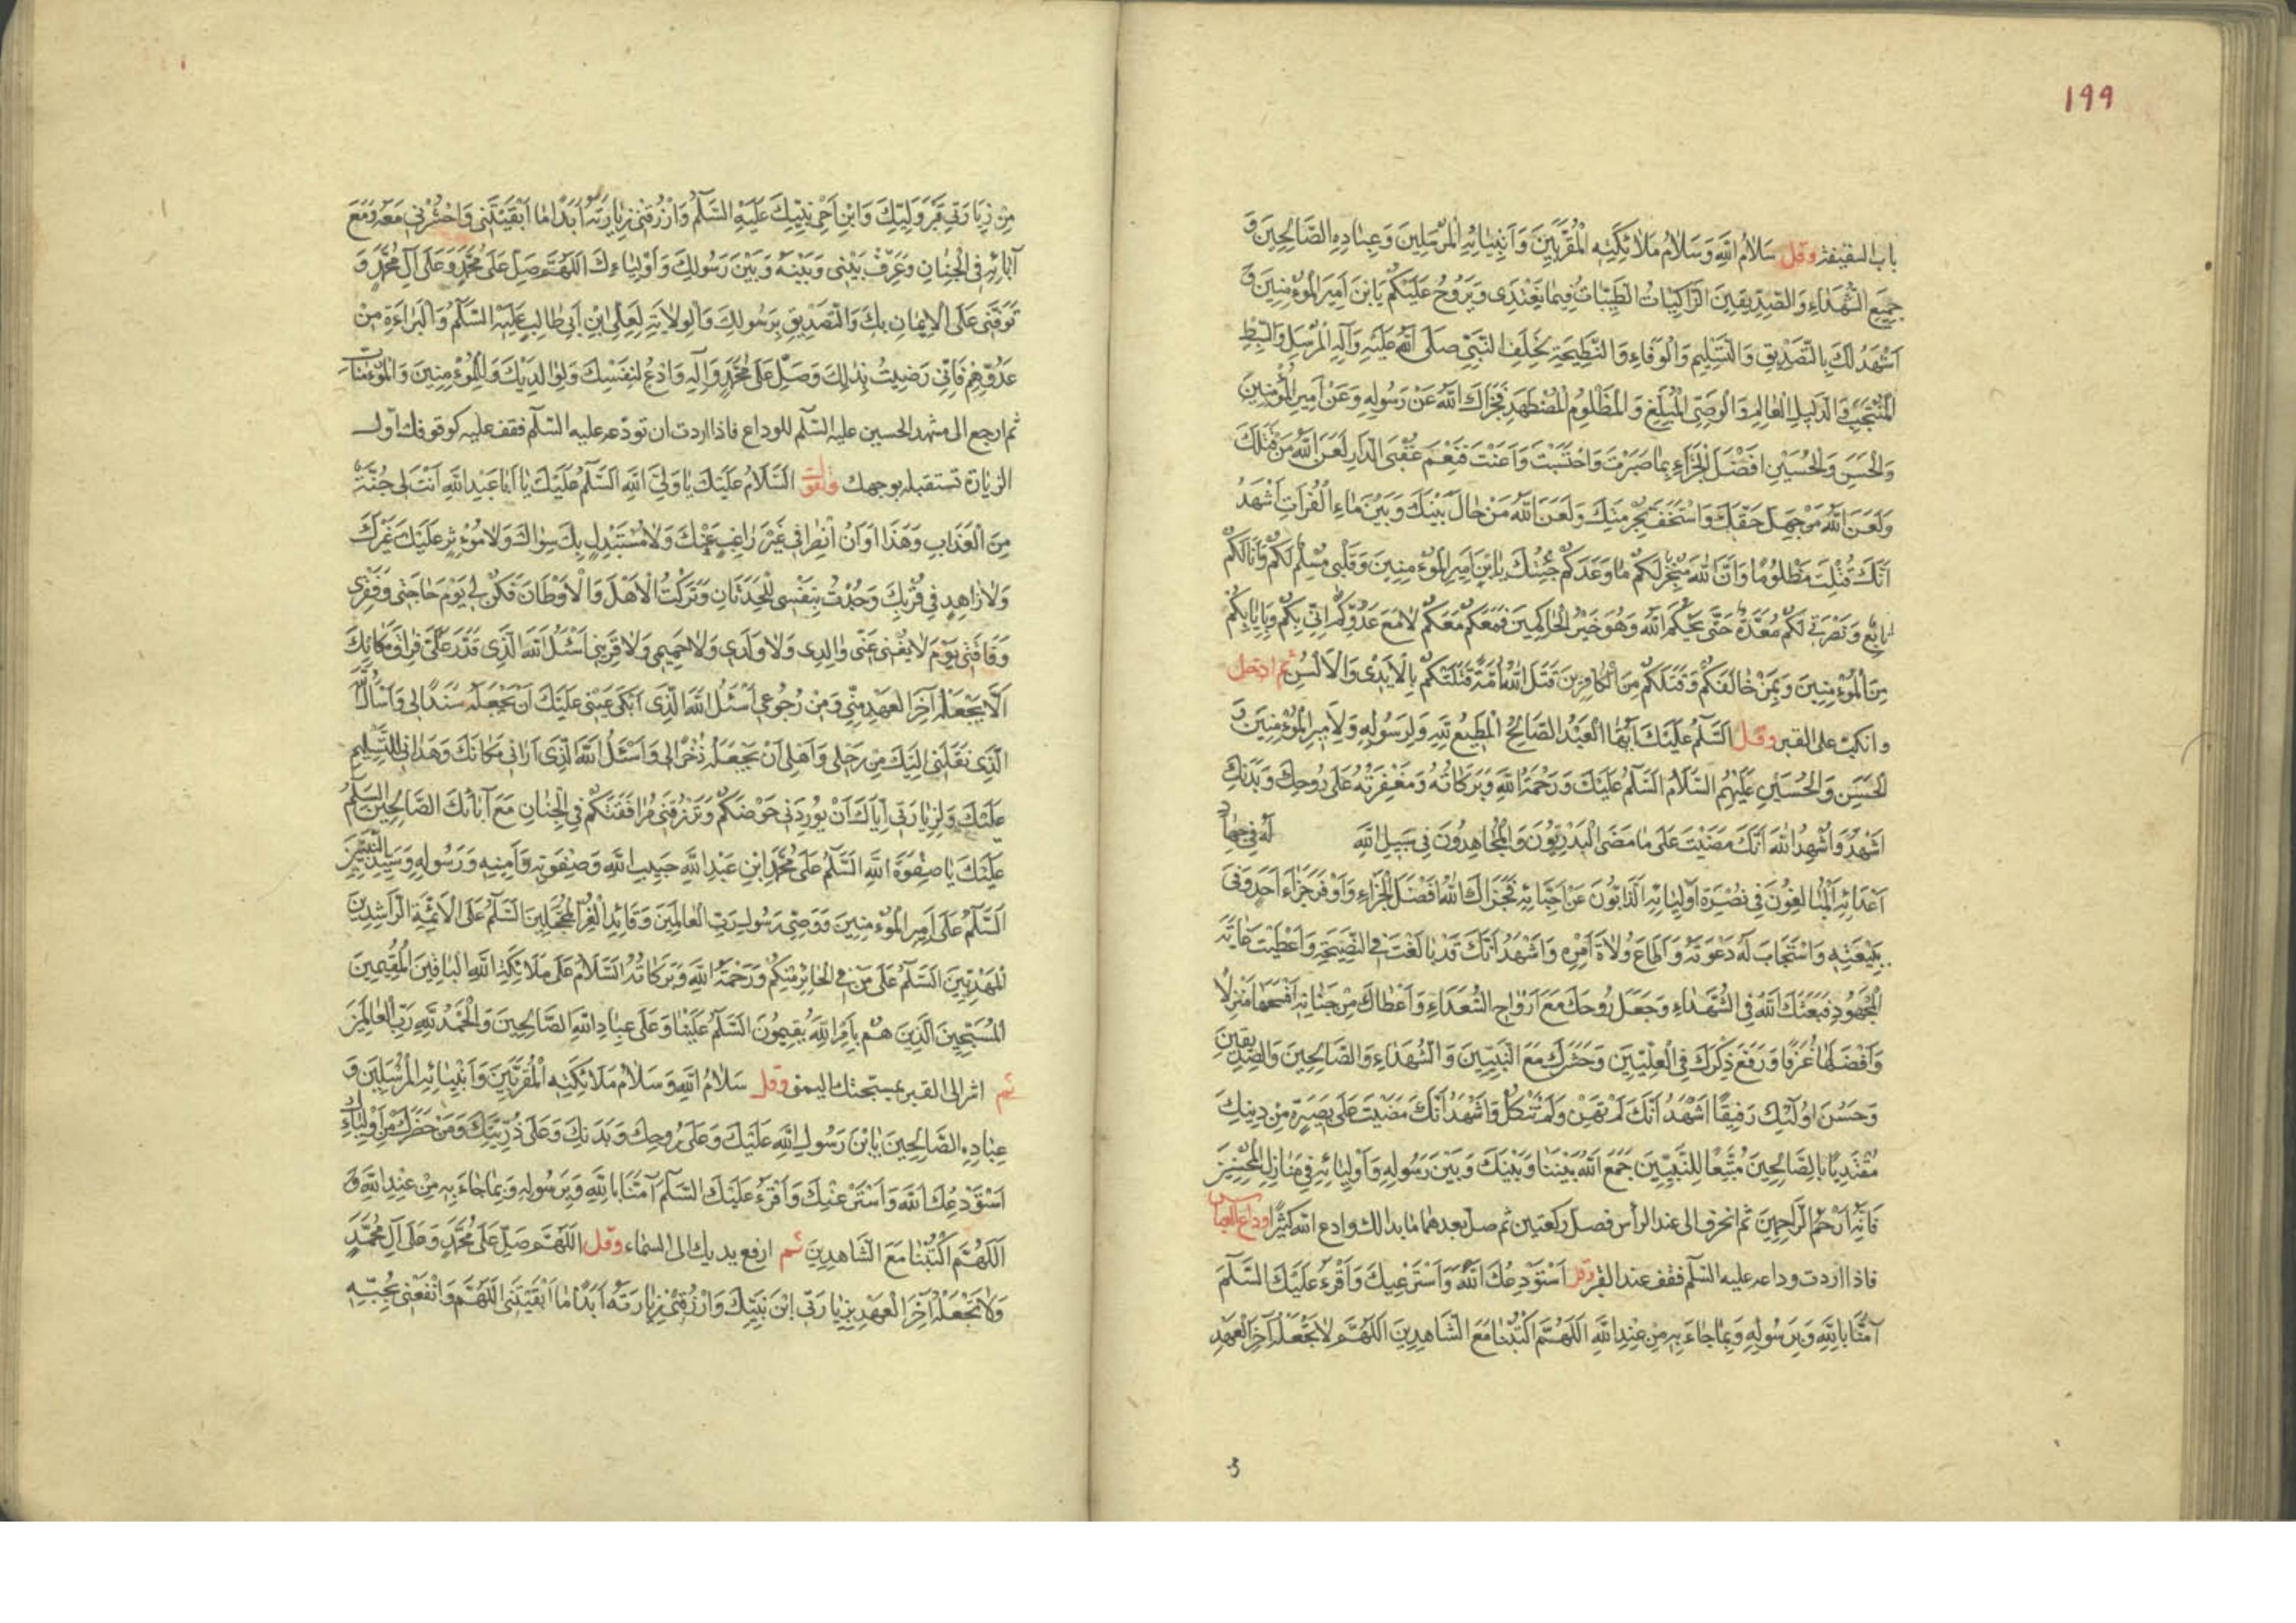 ۱۹۹
باب السقیفة وقل سَلامُ اللهِ وَسَلامُ مَلائِكَتِهِ الْمُقَرَّبِينَ وَأَنْبِيَائِهِ الْمُرْسَلِينَ وَعِبَادِهِ الصَّالِحِينَ وَ
جَمِيعِ الشُّهَدَاءِ وَالصِّدِّيقِينَ الزَّاكِيَاتُ الطَّيِّبَاتُ فِيمَا تَغْتَدِى وَتَرُوحُ عَلَيْكُمْ يَابْنَ أَمِيرِ الْمُؤْمِنِينَ وَ
أَشْهَدُ لَكَ بِالتَّصْدِيقِ وَالتَّسْلِيمِ وَالْوَفَاءِ وَالنَّصِيحَةِ لِخَلَفِ النَّبِيِّ صَلَّى اللهُ عَلَيْهِ وَآلِهِ الْمُرْسَلِ وَالسِّبْطِ
الْمُنْتَجَبِ وَالدَّلِيلِ الْعَالِمِ وَالْوَصِيِّ الْمُبَلِّغِ وَالْمَظْلُومِ الْمُضْطَهَدِ فَجَزَاكَ اللهُ عَنْ رَسُولِهِ وَعَنْ أَمِيرِ الْمُؤْمِنِينَ
وَالْحَسَنِ وَالْحُسَيْنِ أَفْضَلَ الْجَزَاءِ بِمَا صَبَرْتَ وَاحْتَسَبْتَ وَأَعَنْتَ فَنِعْمَ عُقْبَى الدَّارِ لَعَنَ اللهُ مَنْ قَتَلَكَ
وَلَعَنَ اللهُ مَنْ جَهِلَ حَقَّكَ وَاسْتَخَفَّ بِحُرْمَتِكَ وَلَعَنَ اللهُ مَنْ حَالَ بَيْنَكَ وَبَيْنَ مَاءِ الْفُرَاتِ أَشْهَدُ
أَنَّكَ قُتِلْتَ مَظْلُومًا وَأَنَّ اللهَ مُنْجِزٌ لَكُمْ مَا وَعَدَكُمْ جِئْتُكَ يَابْنَ أَمِيرِ الْمُؤْمِنِينَ وَقَلْبِى مُسَلِّمٌ لَكُمْ وَأَنَا لَكُمْ
تَابِعٌ وَنُصْرَتِى لَكُمْ مُعَدَّةٌ حَتَّى يَحْكُمَ اللهُ وَهُوَ خَيْرُ الْحَاكِمِينَ فَمَعَكُمْ مَعَكُمْ لَا مَعَ عَدُوِّكُمْ إِنِّى بِكُمْ وَبِإِيَابِكُمْ
مِنَ الْمُؤْمِنِينَ وَبِمَنْ خَالَفَكُمْ وَقَتَلَكُمْ مِنَ الْكَافِرِينَ قَتَلَ اللهُ أُمَّةً قَتَلَتْكُمْ بِالْأَيْدِى وَالْأَلْسُنِ ثم ادخل
وانكب على القبر وقل السَّلٰمُ عَلَيْكَ أَيُّهَا الْعَبْدُ الصَّالِحُ الْمُطِيعُ لِلّٰهِ وَلِرَسُولِهِ وَلِأَمِيرِ الْمُؤْمِنِينَ وَ
الْحَسَنِ وَالْحُسَيْنِ عَلَيْهِمُ السَّلَامُ السَّلٰمُ عَلَيْكَ وَرَحْمَةُ اللهِ وَبَرَكَاتُهُ وَمَغْفِرَتُهُ عَلَى رُوحِكَ وَبَدَنِكَ
أَشْهَدُ وَأُشْهِدُ اللهَ أَنَّكَ مَضَيْتَ عَلَى مَا مَضَى الْبَدْرِيُّونَ وَالْمُجَاهِدُونَ فِى سَبِيلِ اللهِ لَهُ فِى جِهَادِ
أَعْدَائِهِ الْمُبَالِغُونَ فِى نُصْرَةِ أَوْلِيَائِهِ الذَّابُّونَ عَنْ أَحِبَّائِهِ فَجَزَاكَ اللهُ أَفْضَلَ الْجَزَاءِ وَأَوْفَرَ جَزَاءِ أَحَدٍ وَفَى
بِبَيْعَتِهِ وَاسْتَجَابَ لَهُ دَعْوَتَهُ وَأَطَاعَ وُلَاةَ أَمْرِهِ وَأَشْهَدُ أَنَّكَ قَدْ بَالَغْتَ فِى النَّصِيحَةِ وَأَعْطَيْتَ غَايَةَ
الْمَجْهُودِ فَبَعَثَكَ اللهُ فِى الشُّهَدَاءِ وَجَعَلَ رُوحَكَ مَعَ أَرْوَاحِ السُّعَدَاءِ وَأَعْطَاكَ مِنْ جِنَانِهِ أَفْسَحَهَا مَنْزِلًا
وَأَفْضَلَهَا غُرَفًا وَرَفَعَ ذِكْرَكَ فِى الْعِلِّيِّينَ وَحَشَرَكَ مَعَ النَّبِيِّينَ وَالشُّهَدَاءِ وَالصَّالِحِينَ وَالصِّدِّيقِينَ
وَحَسُنَ أُولٰئِكَ رَفِيقًا أَشْهَدُ أَنَّكَ لَمْ تَهِنْ وَلَمْ تَنْكُلْ وَأَشْهَدُ أَنَّكَ مَضَيْتَ عَلَى بَصِيرَةٍ مِنْ دِينِكَ
مُقْتَدِيًا بِالصَّالِحِينَ مُتَّبِعًا لِلنَّبِيِّينَ جَمَعَ اللهُ بَيْنَنَا وَبَيْنَكَ وَبَيْنَ رَسُولِهِ وَأَوْلِيَائِهِ فِى مَنَازِلِ الْمُحْسِنِينَ
فَإِنَّهُ أَرْحَمُ الرَّاحِمِينَ ثم انحرف الى عند الرأس فصل ركعتين ثم صل بعدهما ما بدا لك وادع الله كثيرًا وداع العباس
فاذا اردت وداعه عليه السّلٰم فقف عند القبر وقل أَسْتَوْدِعُكَ اللهَ وَأَسْتَرْعِيكَ وَأَقْرَءُ عَلَيْكَ السَّلٰمَ
آمَنَّا بِاللهِ وَبِرَسُولِهِ وَبِمَا جَاءَ بِهِ مِنْ عِنْدِ اللهِ اللّٰهُمَّ اكْتُبْنَا مَعَ الشَّاهِدِينَ اللّٰهُمَّ لَا تَجْعَلْهُ آخِرَ الْعَهْدِ
مِنْ زِيَارَتِى قَبْرَ وَلِيِّكَ وَابْنِ أَخِى نَبِيِّكَ عَلَيْهِ السَّلٰمُ وَارْزُقْنِى زِيَارَتَهُ أَبَدًا مَا أَبْقَيْتَنِى وَاحْشُرْنِى مَعَهُ وَمَعَ
آبَائِهِ فِى الْجِنَانِ وَعَرِّفْ بَيْنِى وَبَيْنَهُ وَبَيْنَ رَسُولِكَ وَأَوْلِيَاءِكَ اللّٰهُمَّ صَلِّ عَلَى مُحَمَّدٍ وَعَلَى آلِ مُحَمَّدٍ وَ
تَوَفَّنِى عَلَى الْإِيمَانِ بِكَ وَالتَّصْدِيقِ بِرَسُولِكَ وَالْوِلَايَةِ لِعَلِىِّ ابْنِ أَبِى طَالِبٍ عَلَيْهِ السَّلٰمُ وَالْبَرَاءَةِ مِنْ
عَدُوِّهِمْ فَإِنِّى رَضِيتُ بِذٰلِكَ وَصَلِّ عَلَى مُحَمَّدٍ وَآلِهِ وَادْعُ لِنَفْسِكَ وَلِوَالِدَيْكَ وَلِلْمُؤْمِنِينَ وَالْمُؤْمِنَاتِ
ثم ارجع الى مشهد الحسين عليه السّلٰم للوداع فاذا اردت ان تودّعه عليه السّلٰم فقف عليه كوقوفك اوّل
الزيارة تستقبله بوجهك وتقول السَّلَامُ عَلَيْكَ يَا وَلِىَّ اللهِ السَّلٰمُ عَلَيْكَ يَا أَبَا عَبْدِ اللهِ أَنْتَ لِى جُنَّةٌ
مِنَ الْعَذَابِ وَهَذَا أَوَانُ انْصِرَافِى غَيْرَ رَاغِبٍ عَنْكَ وَلَا مُسْتَبْدِلٍ بِكَ سِوَاكَ وَلَا مُؤْثِرٍ عَلَيْكَ غَيْرَكَ
وَلَا زَاهِدٍ فِى قُرْبِكَ وَجُدْتُ بِنَفْسِى لِلْحَدَثَانِ وَتَرَكْتُ الْأَهْلَ وَالْأَوْطَانَ فَكُنْ لِى يَوْمَ حَاجَتِى وَفَقْرِى
وَفَاقَتِى يَوْمَ لَا يُغْنِى عَنِّى وَالِدِى وَلَا وَلَدِى وَلَا حَمِيمِى وَلَا قَرِينِى أَسْئَلُ اللهَ الَّذِى قَدَّرَ عَلَىَّ فِرَاقَ مَكَانِكَ
أَلَّا يَجْعَلَهُ آخِرَ الْعَهْدِ مِنِّى وَمِنْ رُجُوعِى أَسْئَلُ اللهَ الَّذِى أَبْكَى عَيْنِى عَلَيْكَ أَنْ يَجْعَلَهُ سَنَدًا لِى وَأَسْأَلُ اللهَ
الَّذِى نَقَلَنِى إِلَيْكَ مِنْ رَحْلِى وَأَهْلِى أَنْ يَجْعَلَهُ ذُخْرًا لِى وَأَسْئَلُ اللهَ الَّذِى أَرَانِى مَكَانَكَ وَهَدَانِى لِلتَّسْلِيمِ
عَلَيْكَ وَلِزِيَارَتِى إِيَّاكَ أَنْ يُورِدَنِى حَوْضَكُمْ وَيَرْزُقَنِى مُرَافَقَتَكُمْ فِى الْجِنَانِ مَعَ آبَائِكَ الصَّالِحِينَ السَّلٰمُ
عَلَيْكَ يَا صِفْوَةَ اللهِ السَّلٰمُ عَلَى مُحَمَّدِ ابْنِ عَبْدِ اللهِ حَبِيبِ اللهِ وَصِفْوَتِهِ وَأَمِينِهِ وَرَسُولِهِ وَسَيِّدِ النَّبِيِّينَ
السَّلٰمُ عَلَى أَمِيرِ الْمُؤْمِنِينَ وَوَصِىِّ رَسُولِ رَبِّ الْعَالَمِينَ وَقَائِدِ الْغُرِّ الْمُحَجَّلِينَ السَّلٰمُ عَلَى الْأَئِمَّةِ الرَّاشِدِينَ
الْمَهْدِيِّينَ السَّلٰمُ عَلَى مَنْ فِى الْحَائِرِ مِنْكُمْ وَرَحْمَةُ اللهِ وَبَرَكَاتُهُ السَّلَامُ عَلَى مَلَائِكَةِ اللهِ الْبَاقِينَ الْمُقِيمِينَ
الْمُسَبِّحِينَ الَّذِينَ هُمْ بِأَمْرِ اللهِ يُقِيمُونَ السَّلٰمُ عَلَيْنَا وَعَلَى عِبَادِ اللهِ الصَّالِحِينَ وَالْحَمْدُ لِلّٰهِ رَبِّ الْعَالَمِينَ
ثم اشر الى القبر بمسبحتك اليمنى وقل سَلَامُ اللهِ وَسَلَامُ مَلَائِكَتِهِ الْمُقَرَّبِينَ وَأَنْبِيَائِهِ الْمُرْسَلِينَ وَ
عِبَادِهِ الصَّالِحِينَ يَابْنَ رَسُولِ اللهِ عَلَيْكَ وَعَلَى رُوحِكَ وَبَدَنِكَ وَعَلَى ذُرِّيَّتِكَ وَمَنْ حَضَرَكَ مِنْ أَوْلِيَاءِكَ
أَسْتَوْدِعُكَ اللهَ وَأَسْتَرْعِيكَ وَأَقْرَءُ عَلَيْكَ السَّلٰمَ آمَنَّا بِاللهِ وَبِرَسُولِهِ وَبِمَا جَاءَ بِهِ مِنْ عِنْدِ اللهِ وَ
اللّٰهُمَّ اكْتُبْنَا مَعَ الشَّاهِدِينَ ثم ارفع يديك الى السماء وقل اللّٰهُمَّ صَلِّ عَلَى مُحَمَّدٍ وَعَلَى آلِ مُحَمَّدٍ
وَلَا تَجْعَلْهُ آخِرَ الْعَهْدِ بِزِيَارَتِى ابْنَ نَبِيِّكَ وَارْزُقْنِى زِيَارَتَهُ أَبَدًا مَا أَبْقَيْتَنِى اللّٰهُمَّ وَانْفَعْنِى بِحُبِّهِ